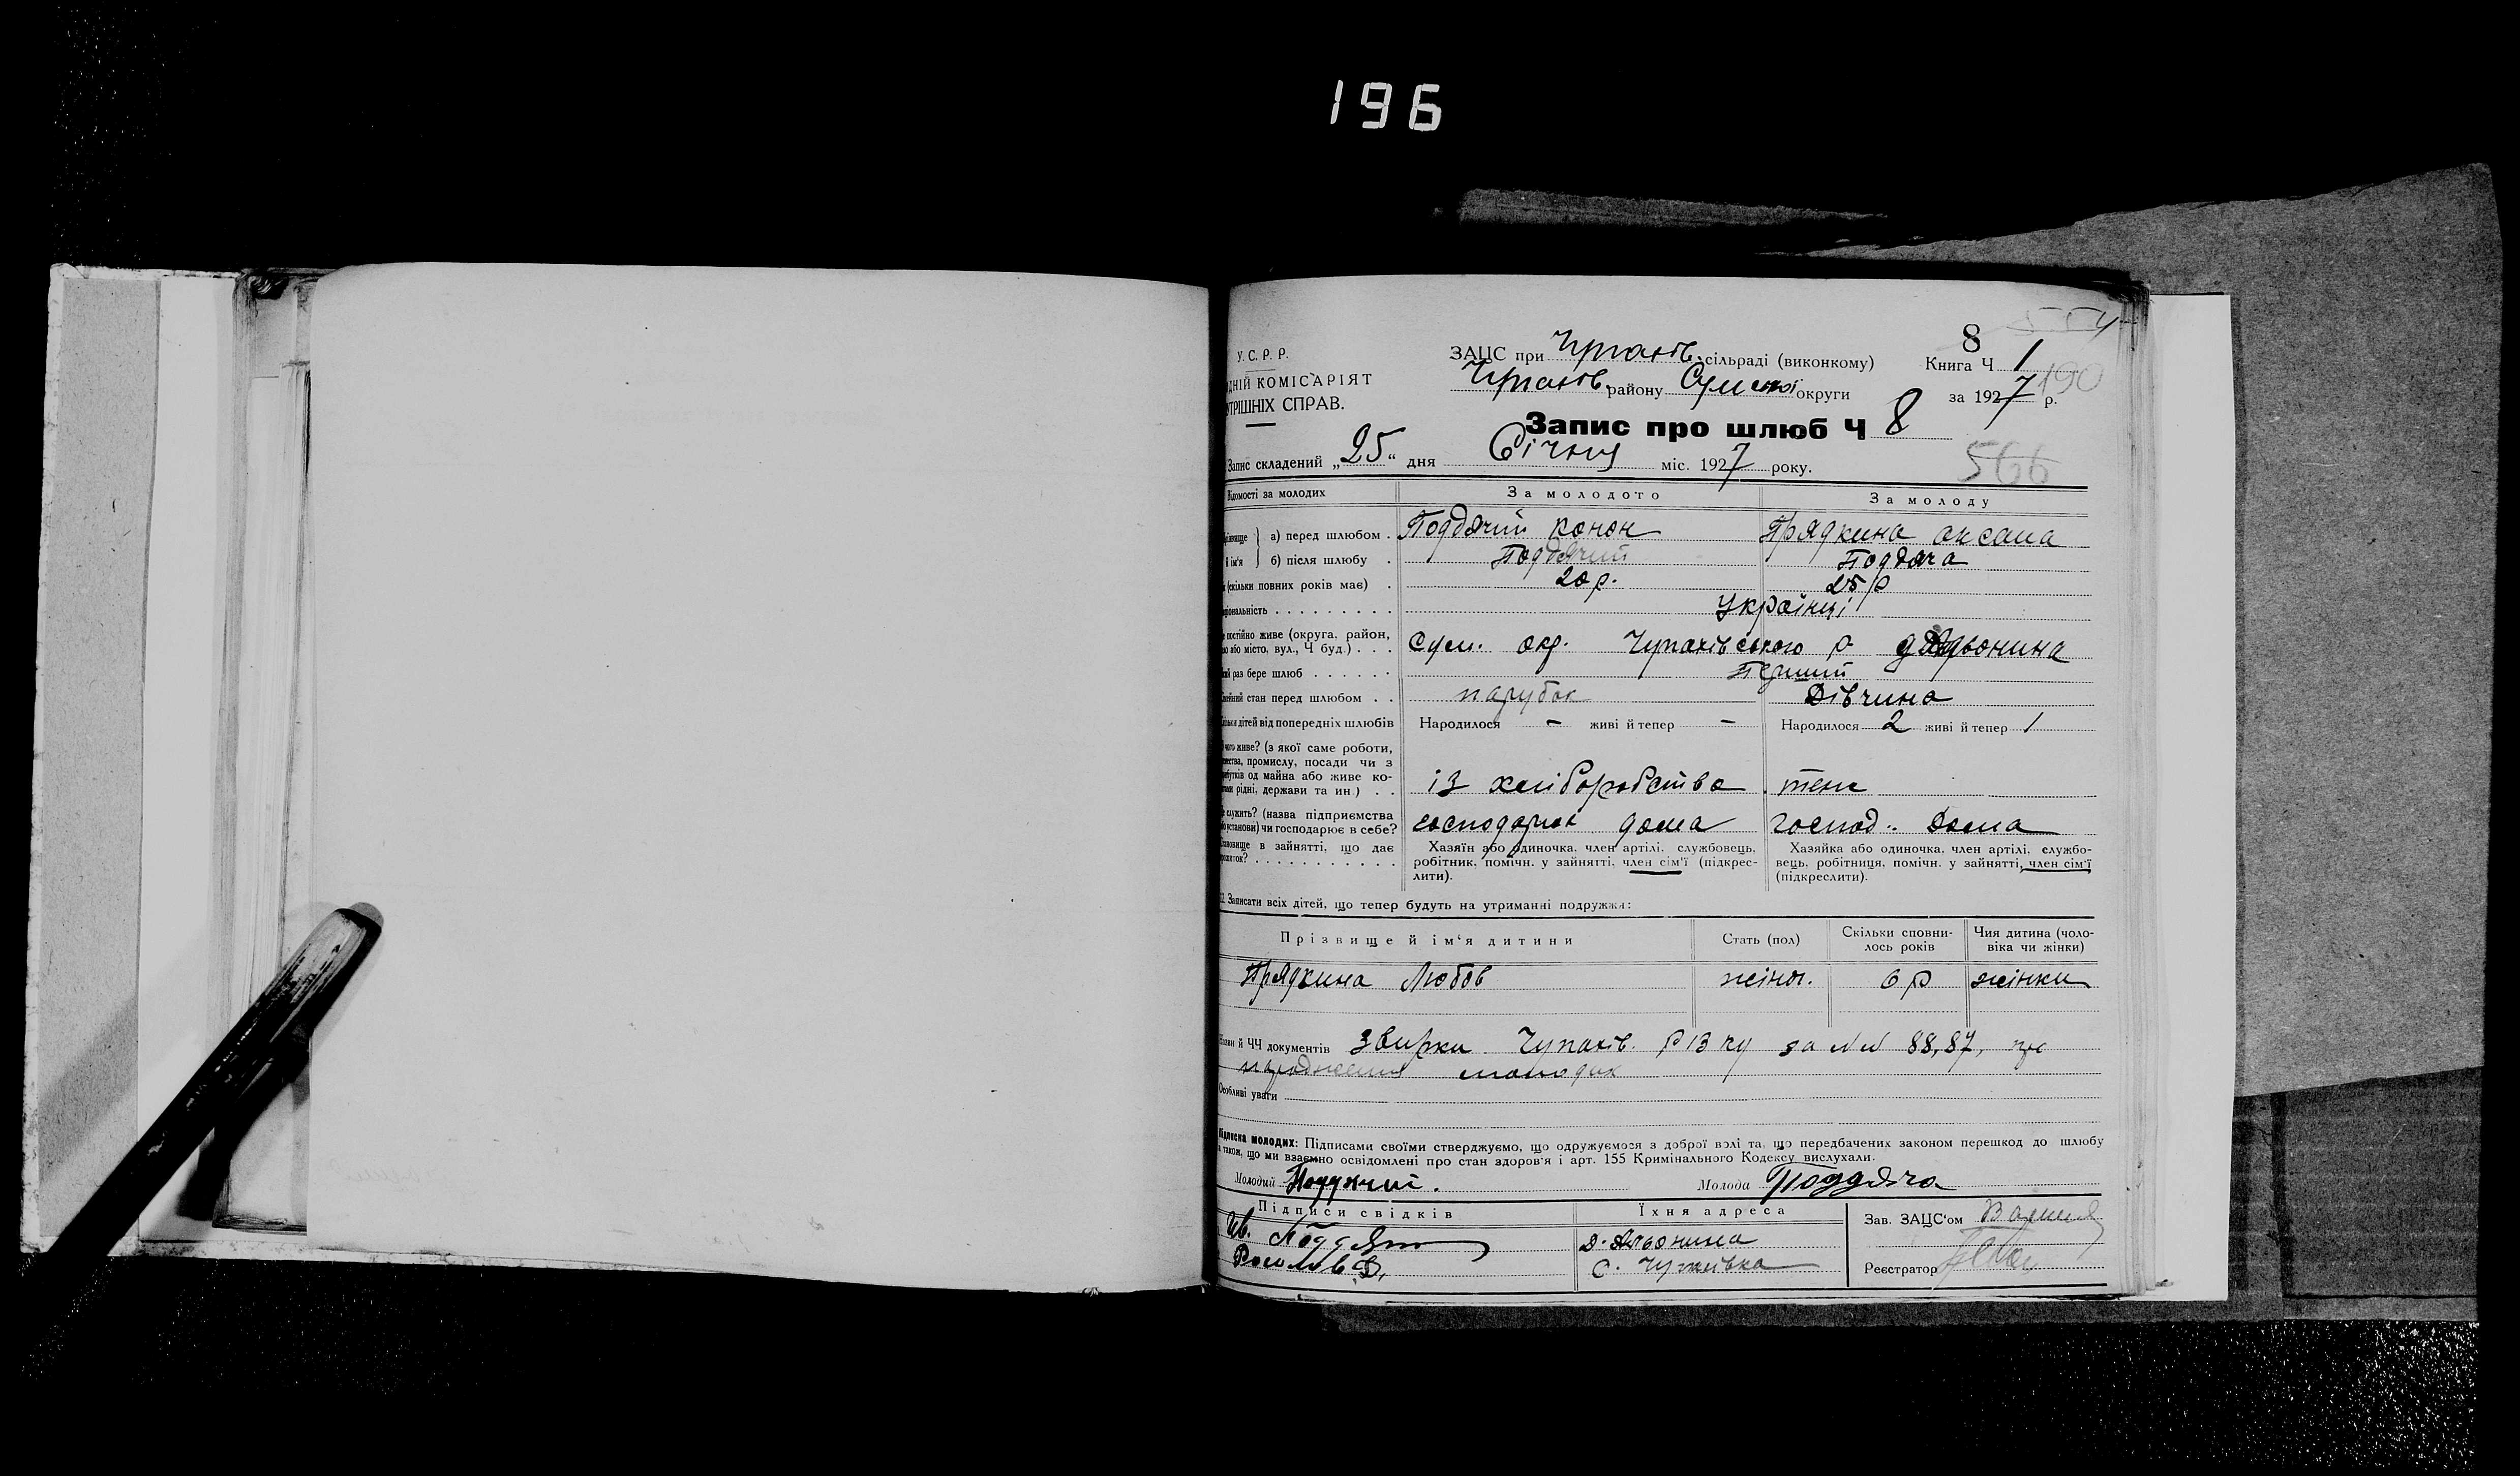 196
8 554
У.С.Р.Р.
ЗАЦС при Чупахів. сільраді (виконкому) Книга Ч 1
ДНІЙ КОМІСАРІЯТ
Чупахів. району Сумської округи за 1927 р. 190
УТРІШНІХ СПРАВ.
Запис про шлюб Ч 8
Запис складений „25" дня Січня міс. 1927 року. 566
Відомості за молодих За молодого За молоду
а) перед шлюбом . Поддячий Конон Прядкина Оксана
й ім'я б) після шлюбу . Поддячий Поддяча
(скільки повних років має) . 20 р. 25 р
Українці
постійно живе (округа, район,
або місто, вул., Ч буд.) . . . Сум. окр. Чупахівського р
раз бере шлюб . . . . . . Перший
стан перед шлюбом . . парубок Дівчина
дітей від попередніх шлюбів Народилося – живі й тепер – Народилося 2 живі й тепер 1
чого живе? (з якої саме роботи,
промислу, посади чи з
од майна або живе ко-
рідні, держави та ин.) . . із хліборобства теж
служить? (назва підприємства
установи) чи господарює в себе? господарює дома господ. Дома
в зайнятті, що дає Хазяїн або одиночка, член артілі, службовець, Хазяйка або одиночка, член артілі, службо-
робітник, помічн. у зайнятті, член сім'ї (підкрес- вець, робітниця, помічн. у зайнятті, член сім'ї
лити). (підкреслити).
12. Записати всіх дітей, що тепер будуть на утриманні подружжя:
Прізвище й ім'я дитини Стать (пол) Скільки сповни- Чия дитина (чоло-
лось років віка чи жінки)
Прядкина Любов жіноч. 6 р жінки
Назви й ЧЧ документів Чупахів. за №№ 88, 87, про
народження молодих
Особливі уваги
Підписка молодих: Підписами своїми стверджуємо, що одружуємося з доброї волі та, що передбачених законом перешкод до шлюбу
а також, що ми взаємно освідомлені про стан здоров'я і арт. 155 Кримінального Кодексу вислухали.
Молодий Поддячий. Молода Поддяча
Підписи свідків Їхня адреса Зав. ЗАЦС'ом
Ів. Поддя
С.
Реєстратор